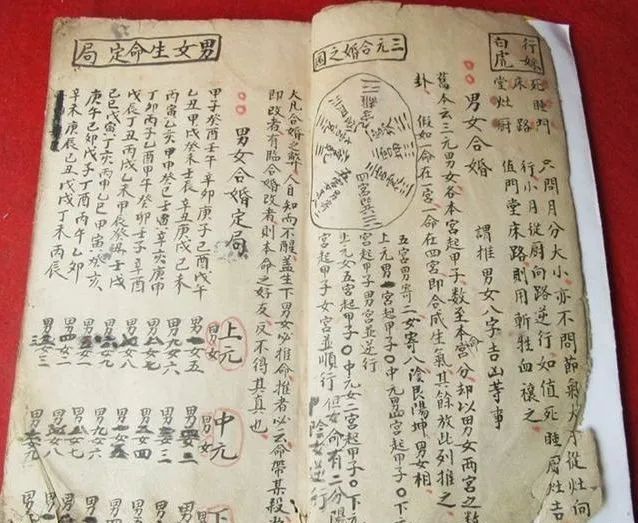 行嫁白虎
死睡門
床路
堂灶厨
只問月分大小亦不問節氣大月從灶向
行小月從厨向路逆行如值死睡厨灶吉
值門堂床路則用斬牲血禳之
男女合婚 謂推男女八字吉凶等事
舊本云三元男女各本宮起甲子数至本宮分却以男女两宮之数
卦 假如一命在一宮一命在四宮即合成生气其餘放此列推之
三元合婚之圖
五宮男寄二女寄八陰艮陽坤男女相
上元男一宮起甲子〇中元男四宮起甲子〇下元
宮起甲子男宮並逆行
上元女五宮起甲子〇中元女二宮起甲子〇下元
宮起甲子女宮並順行 但女命有二分陽
陰女逆行
男女生命定局
大凡合婚之弊人自知而不醒盖生下男女必推命推者必云命帶某殺
即改者有臨合婚改者則本命之好反不得其真也
男女合婚定局
甲子癸酉壬午辛卯庚子己酉戊午
乙丑甲戌癸未壬辰辛丑庚戌己未
丙寅乙亥甲申癸巳壬寅辛亥庚申
丁卯丙子乙酉甲午癸卯壬子辛酉
戊辰丁丑丙戌乙未甲辰癸丑壬戌
己巳戊寅丁亥丙申乙巳甲寅癸亥
庚午己卯戊子丁酉丙午乙卯
辛未庚辰己丑戊戌丁未丙辰
上元
男女
男一女五
男九女六
男八女七
男七女八
男六女九
男女一
男四女二
男女三
中元
男女
男女二
男女三
男二女四
男一女五
男九女六
男八女七
男七女八
男六女九